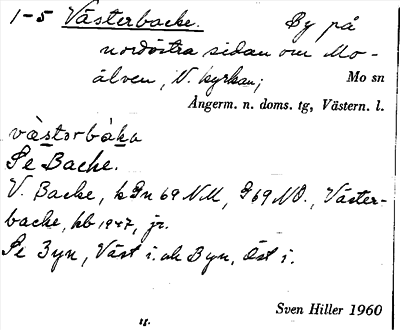 1-5 Västerbacke. By på
nordöstra sidan om Mo-
älven, N. kyrkan; Mo sn
Ångerm. n. doms. tg, Västern. l.
västərbàka
Se Backe.
V. Backe, 69 NM, 69 NO., Väster-
backe, kb 1947, jr.
Se Byn, Väst i. ok Byn, Öst i.
Sven Hiller 1960